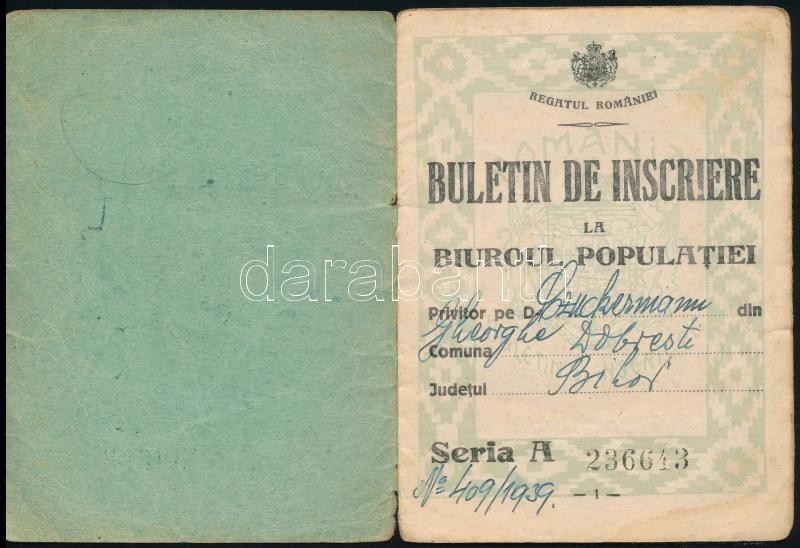 REGATUL ROMÂNIEI
BULETIN DE INSCRIERE
LA
BIUROUL POPULAȚIEI
Privitor pe D din
Gheorghe
Comuna Dobresti
Județul Bihor
Seria A 236643
No 409/1939.
— 1 —
darabanth